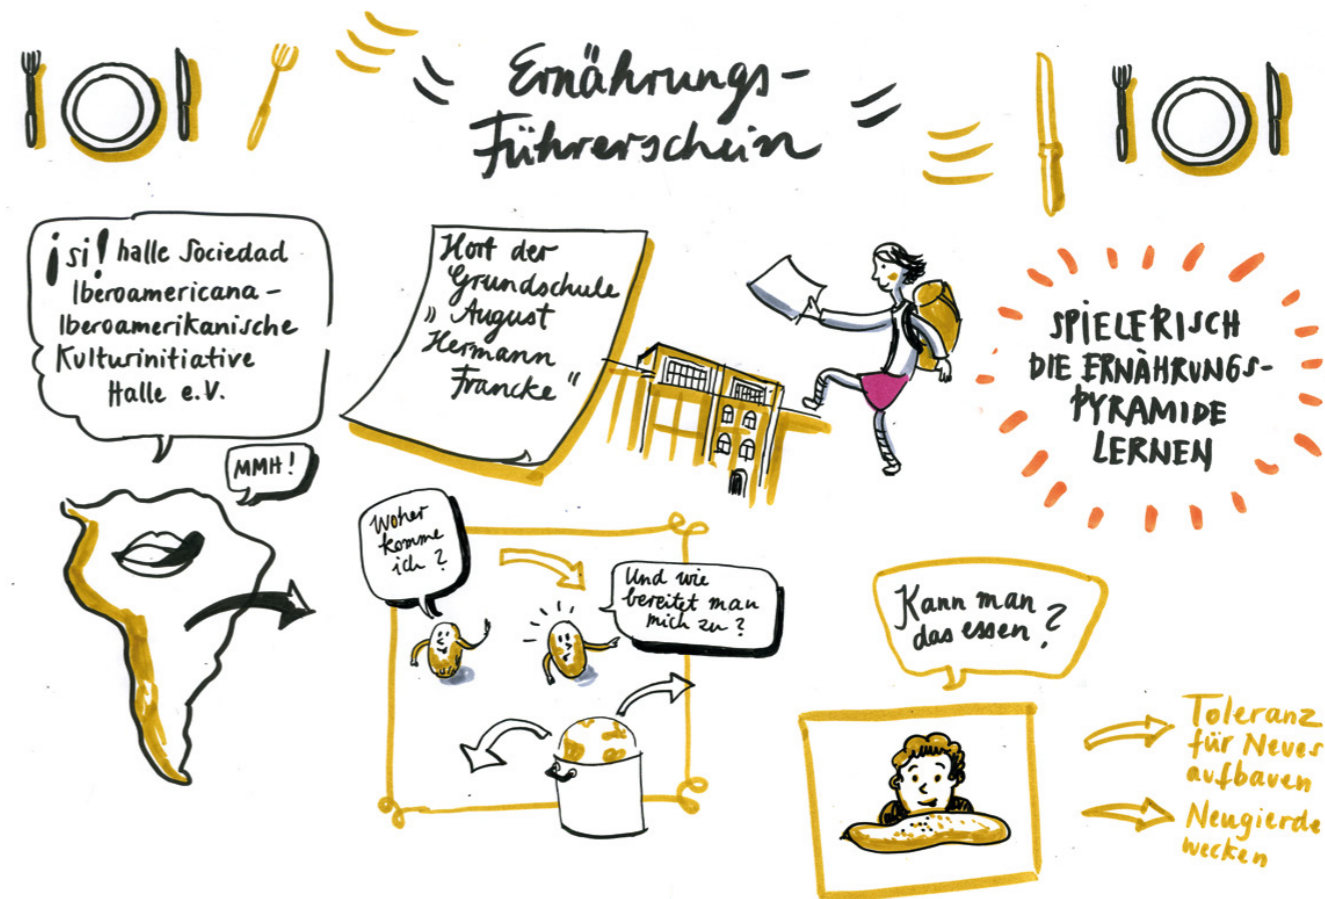 Ernährungs-
Führerschein
¡si! halle Sociedad
Iberoamericana-
Iberoamerikanische
Kulturinitiative
Halle e.V.
MMH!
Hort der
Grundschule
"August
Hermann
Francke"
SPIELERISCH
DIE ERNÄHRUNGS-
PYRAMIDE
LERNEN
Woher
komme
ich?
Und wie
bereitet man
mich zu?
Kann man
das essen?
Toleranz
für Neues
aufbauen
Neugierde
wecken